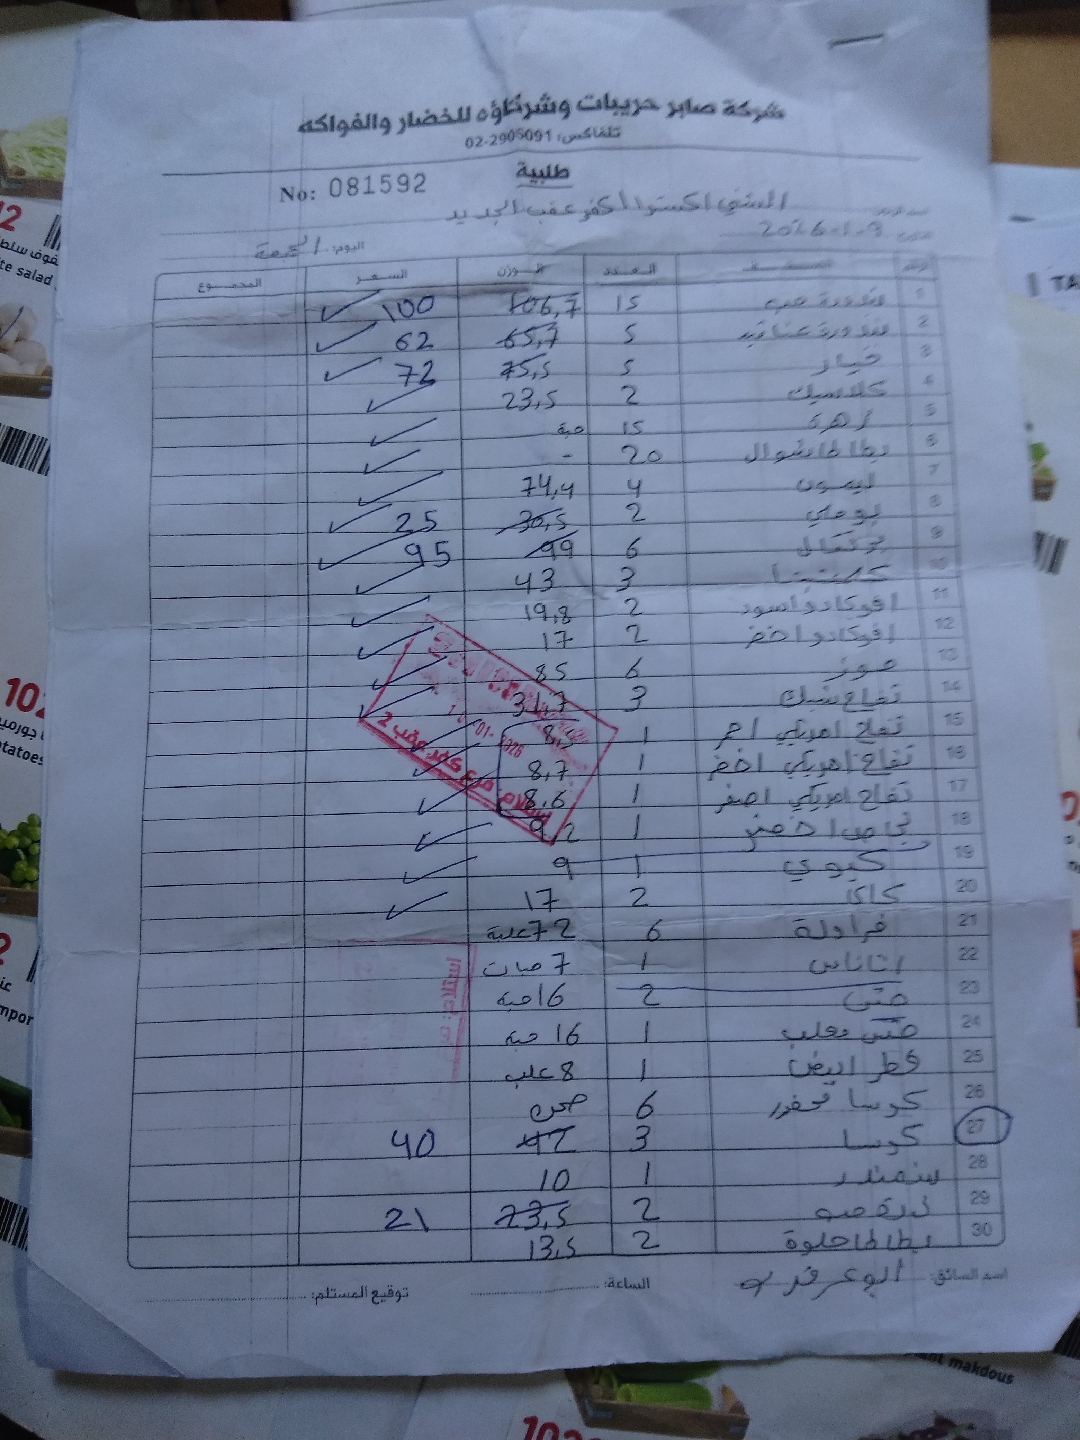 شركة صابر حريبات وشركاؤه للخضار والفواكه
تلفاكس: 02-2905091
طلبية
No: 081592
الشني اكسترا كفر عقب الجديد
2026-1-9
اليوم: الجمعة
الرقم الصنف العدد الوزن السعر المجموع
1 بندورة حب 15 106,7 100
2 بندورة عناقيد 5 65,7 62
3 خيار 5 75,5 72
4 كلاسيك 2 23,5
5 زهرة 15 حبة
6 بطاطا شوال 20 -
7 ليمون 4 74,4
8 بوملي 2 30,5 25
9 برتقال 6 99 95
10 كلمنتينا 3 43
11 افوكادو اسود 2 19,8
12 افوكادو اخضر 2 17
13 موز 6 85
14 تفاح شبك 3 31,7
15 تفاح امريكي احمر 1 8,5
16 تفاح امريكي اخضر 1 8,7
17 تفاح امريكي اصفر 1 8,6
18 نجاص اخضر 1 9,2
19 كيوي 1 9
20 كاكا 2 17
21 فراولة 6 72 علبة
22 اناناس 1 7 حبات
23 2 16 حبة
24 1 16 حبة
25 فطر ابيض 1 8 علب
26 كوسا محفور 6 صحن
27 كوسا 3 42 40
28 شمندر 1 10
29 ذرة 2 23,5 21
30 بطاطا حلوة 2 13,5
استلام فرع كفر عقب 2
اسم السائق: الساعة: توقيع المستلم:
ite salad
10
atatoes
mpor
TA
makdous
102